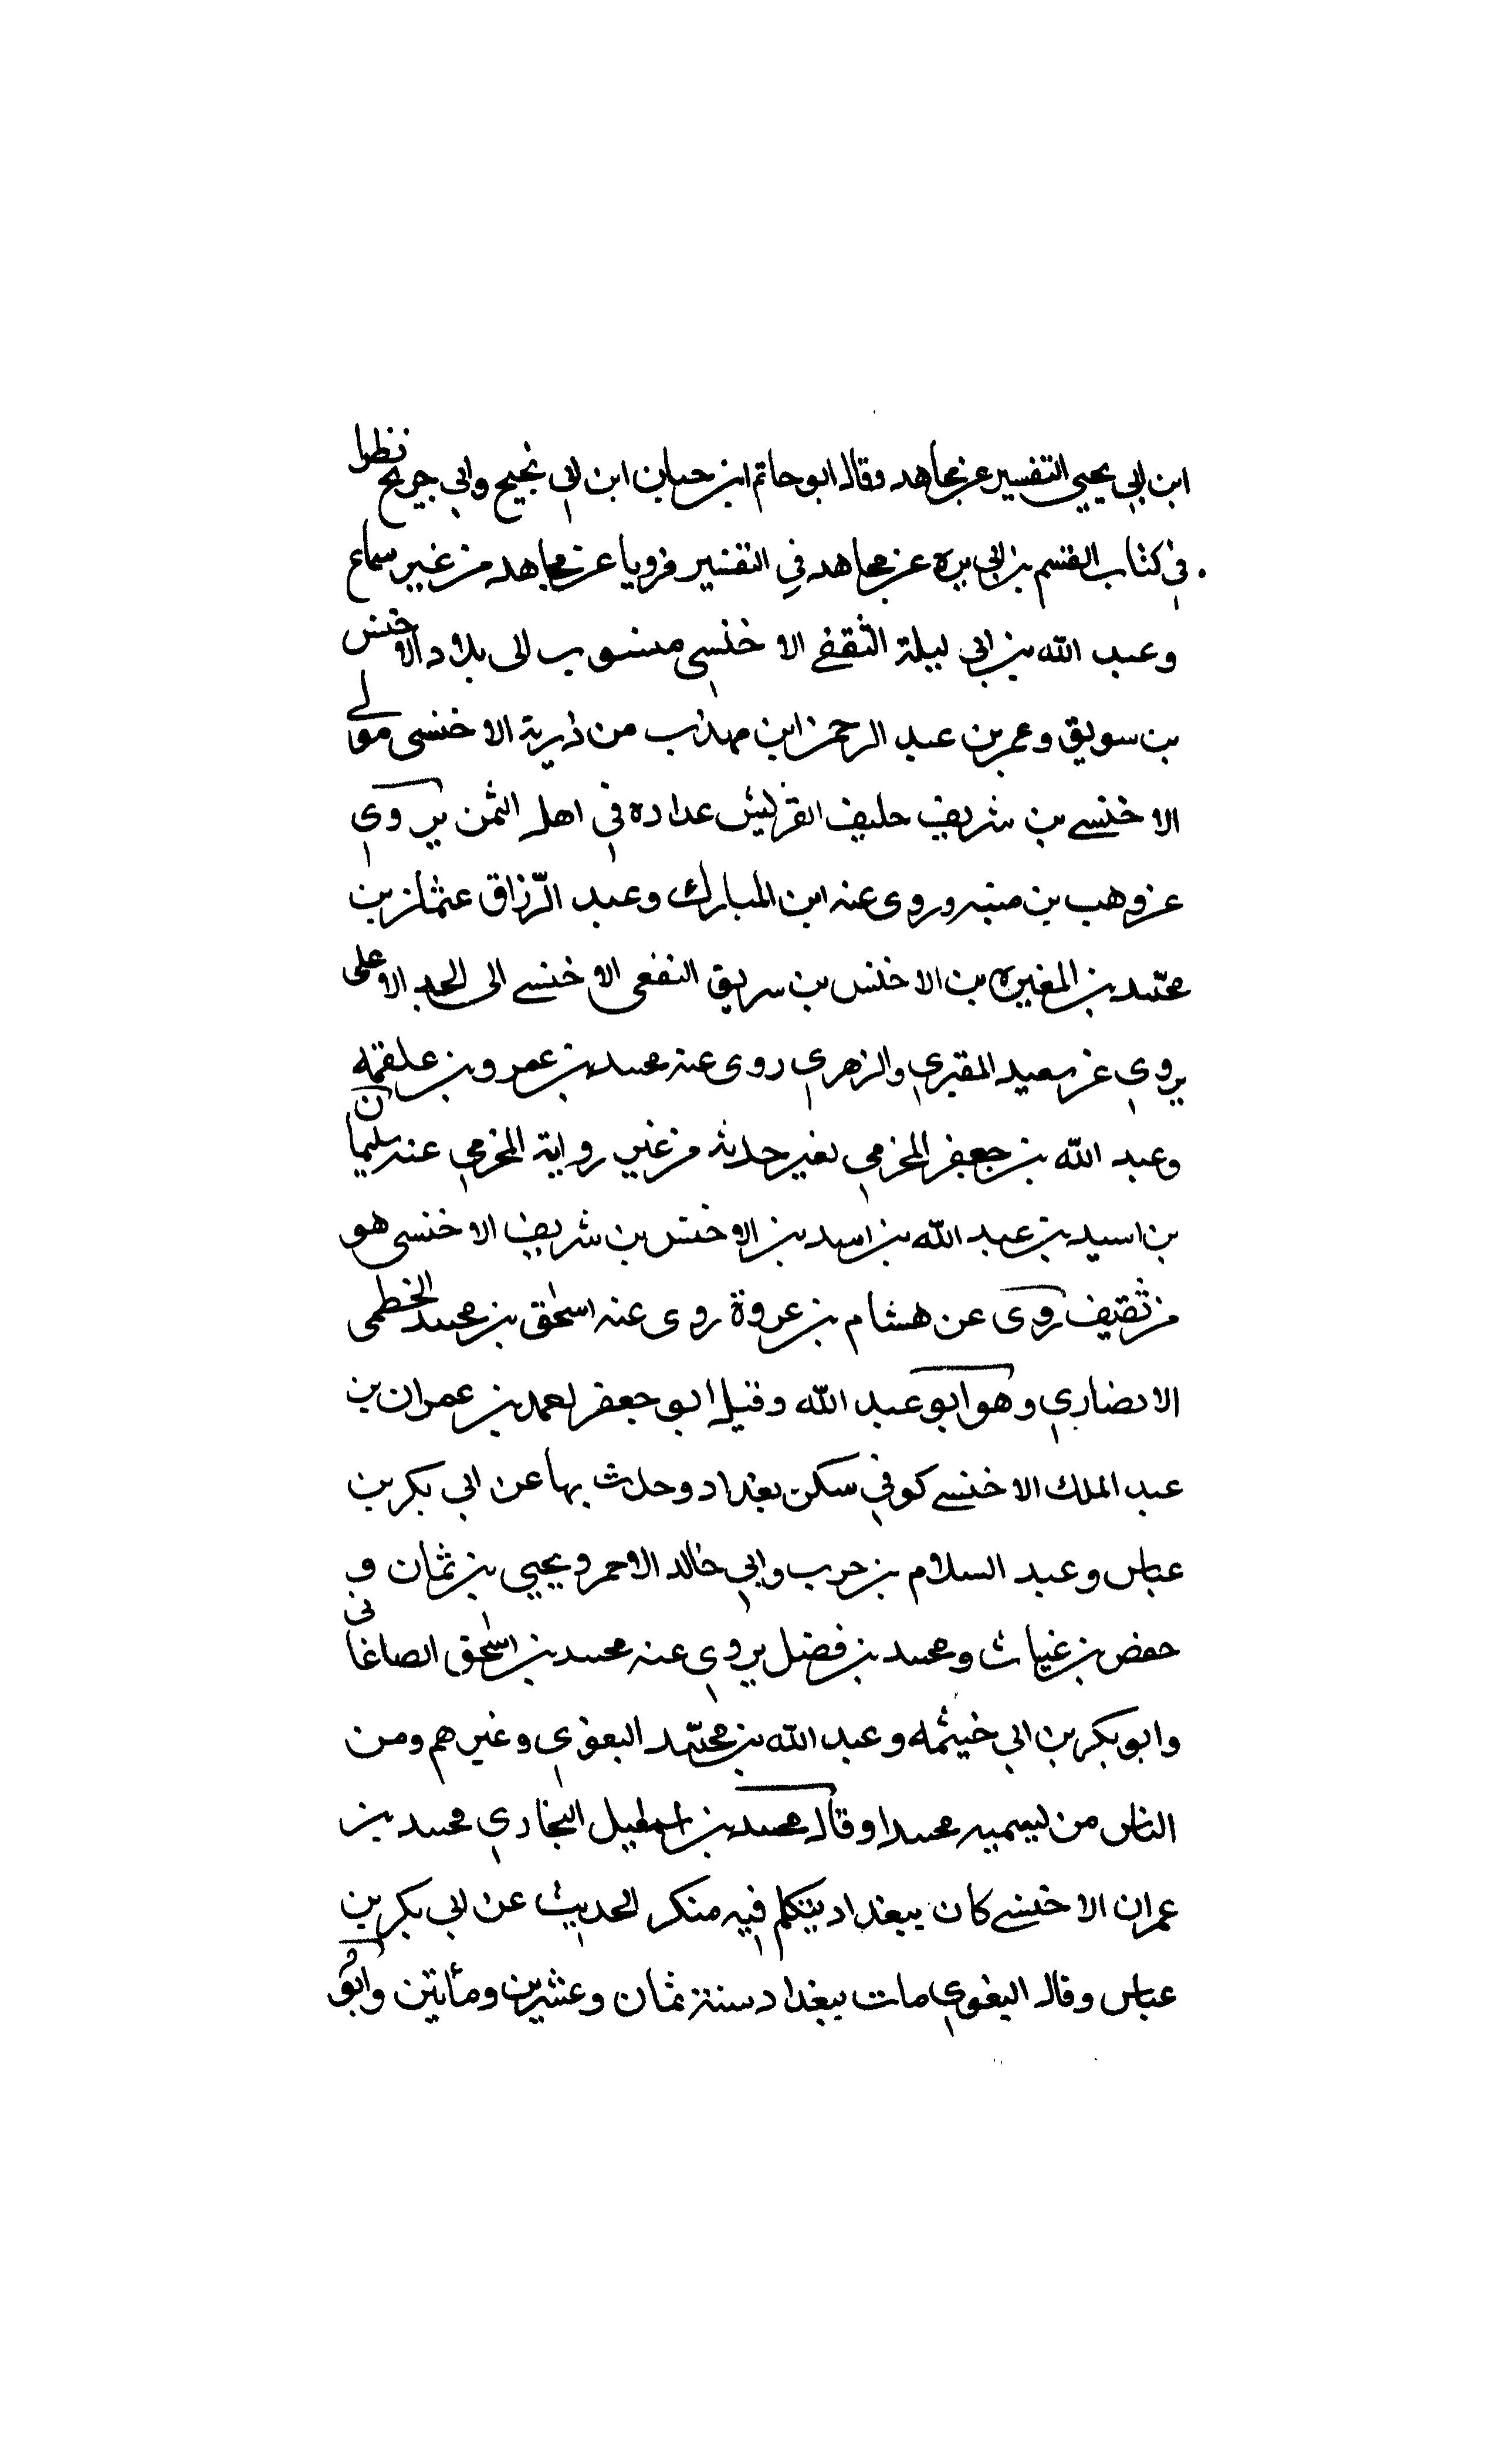 ابن ابي يحيي التفسير عن مجاهد وقال ابو حاتم ابن حبان ابن ابي نجيح وابي جريح نظرا
في كتاب القسم بن ابي بره عن مجاهد في التفسير فرويا عن مجاهد من غير سماع
وعبد الله بن ابي لبيلة الثقفي الاخنسي منسوب الى بلاد الاخنس
بن سويق وعمر بن عبد الرحمن ابن مهذب من ذرية الاخنسى مولى
الاخنسے بن شريف حليف القريش عداده في اهل اليمن يروي
عن وهب بن منبه وروى عنه ابن المبارك وعبد الرّزاق عثمان بن
محمّد بن المغيره بن الاخنس بن سريق الثقفى الاخنسے الى الجد الاعلى
يروي عن سعيد المقبري والزهري روى عنه محمد بن عمرو بن علقمه
وعبد الله بن جعفر المخزمي بغير حديثه من غير رواية المخزمي عنه سليمان
بن اسيد بن عبد الله بن اسيد بن الاخنس بن شريف الاخنسى هو
من ثقيف روى عن هشام بن عروة روى عنه اسحق بن محمد الخطمى
الانصاري وهو ابو عبد الله وقيل ابو جعفر احمد بن عمران بن
عبد الملك الاخنسے كوفي سكن بغداد وحدث بها عن ابي بكر بن
عباس وعبد السلام بن حرب وابي خالد الاحمر ويحيي بن ثمان و
حفص بن غياث ومحمد بن فضل يروي عنه محمد بن اسحق الصاغانى
وابو بكر بن ابي خيثمه وعبد الله بن محمّد البغوي وغيرهم ومن
الناس من يسميه محمدا وقال محمد بن اسمعيل البخاري محمد بن
عمران الاخنسے كان ببغداد يتكلم فيه منكر الحديث عن ابي بكر بن
عباس وقال البغوي مات ببغداد سنة ثمان وعشرين ومأيتين وابو